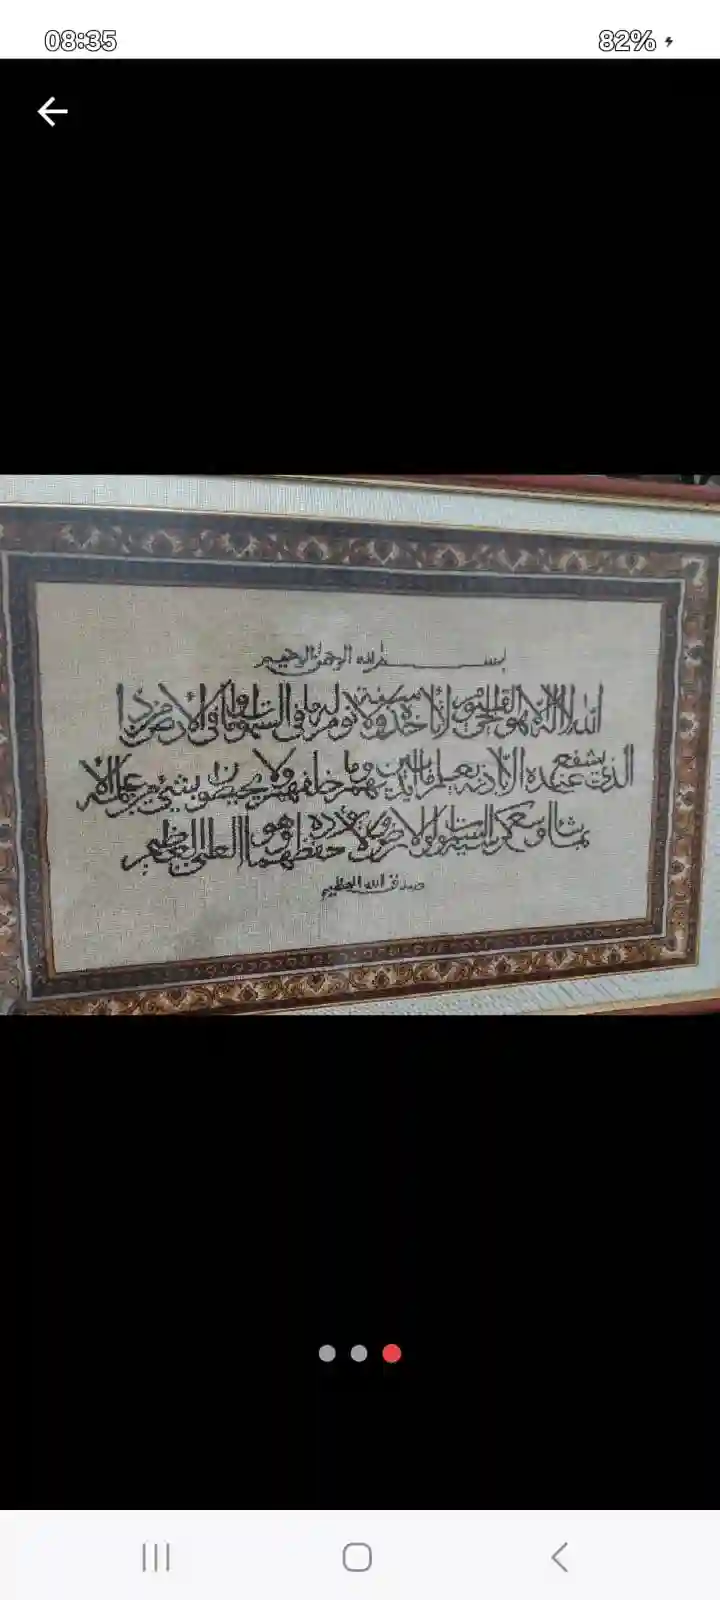 08:35
82%
بسم الله الرحمن الرحيم
الله لا اله الا هو الحي القيوم لا تأخذه سنة ولا نوم له ما في السموات وما في الأرض من ذا
الذي يشفع عنده الا باذنه يعلم ما بين أيديهم وما خلفهم ولا يحيطون بشيء من علمه الا
بما شاء وسع كرسيه السموات والارض ولا يؤده حفظهما وهو العلي العظيم
صدق الله العظيم